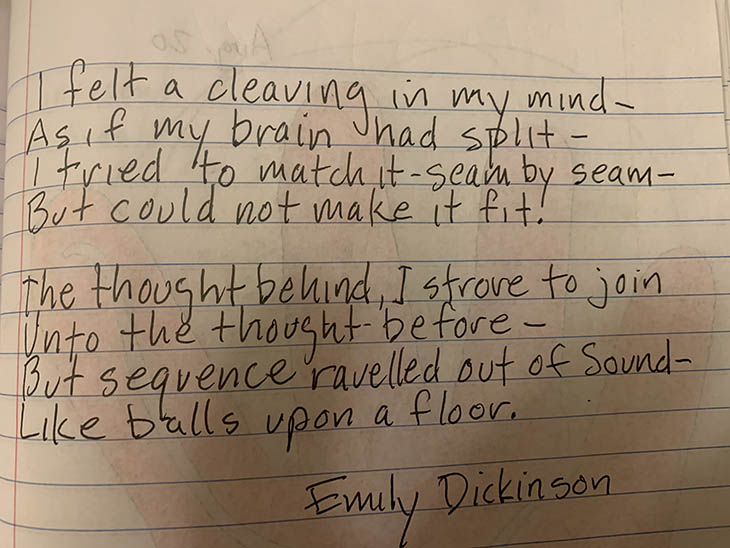 Aug. 20
I felt a cleaving in my mind-
As if my brain had split-
I tried to match it-seam by seam-
But could not make it fit!
The thought behind, I strove to join
Unto the thought-before-
But sequence ravelled out of Sound-
Like balls upon a floor.
Emily Dickinson